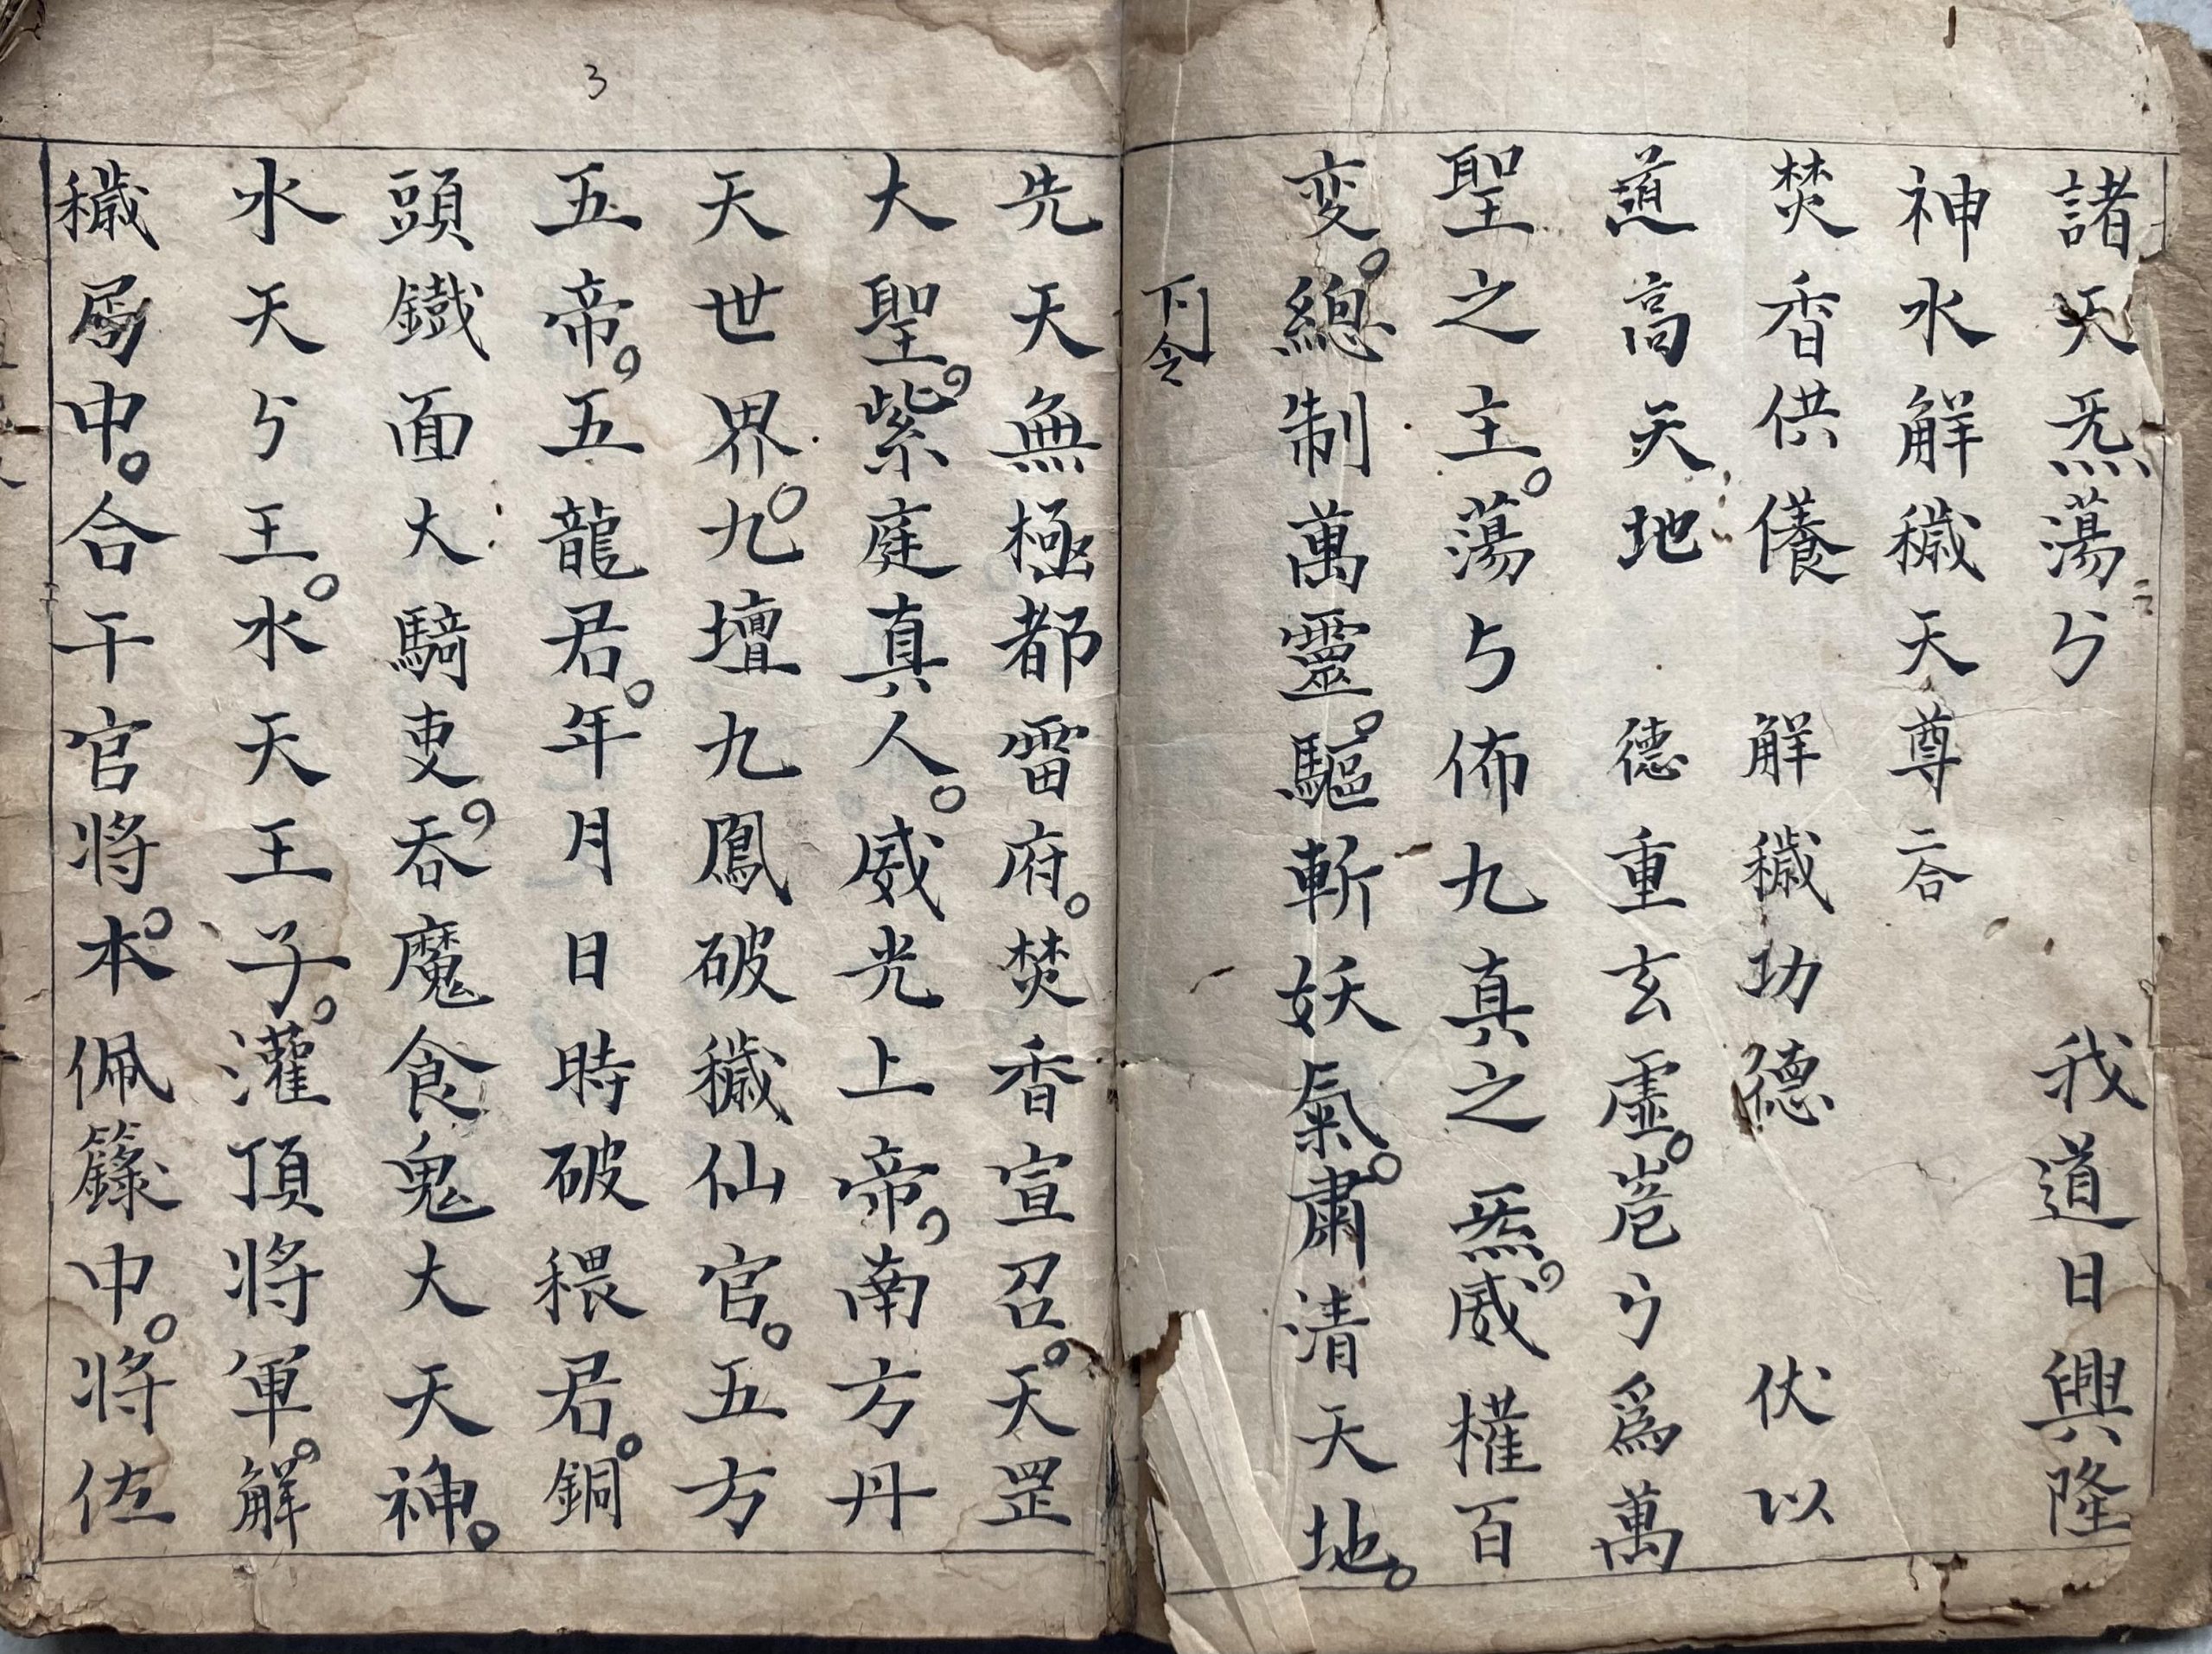 諸天炁蕩〻　我道日興隆
神水解穢天尊 二合
焚香供養　解穢功德　伏以
道高天地　德重玄虛。巍〻為萬
聖之主。蕩〻佈九真之炁。威權百
変。總制萬靈。驅斬妖氣。肅清天地。
下令
3
先天無極都雷府。焚香宣召。天罡
大聖。紫庭真人。威光上帝。南方丹
天世界。九壇九鳳破穢仙官。五方
五帝。五龍君。年月日時破穢君。銅
頭鐵面大騎吏。吞魔食鬼大天神。
水天〻王。水天王子。灌頂將軍。解
穢局中。合干官將。本佩籙中。將佐